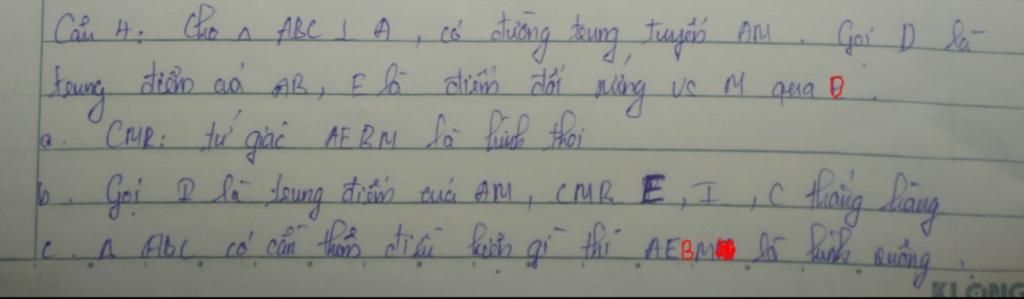 Câu 4: Cho △ ABC ⊥ A, có đường trung tuyến AM. Gọi D là
trung điểm củă AB, E là điểm đối xứng vs M qua D.
a. CMR: tứ giác AEBM là hình thoi
b. Gọi I là trung điểm củă AM, CMR E, I, C thẳng hàng
c. △ ABC có cần thêm điều kiện gì thì AEBM là hình vuông.
KLONG